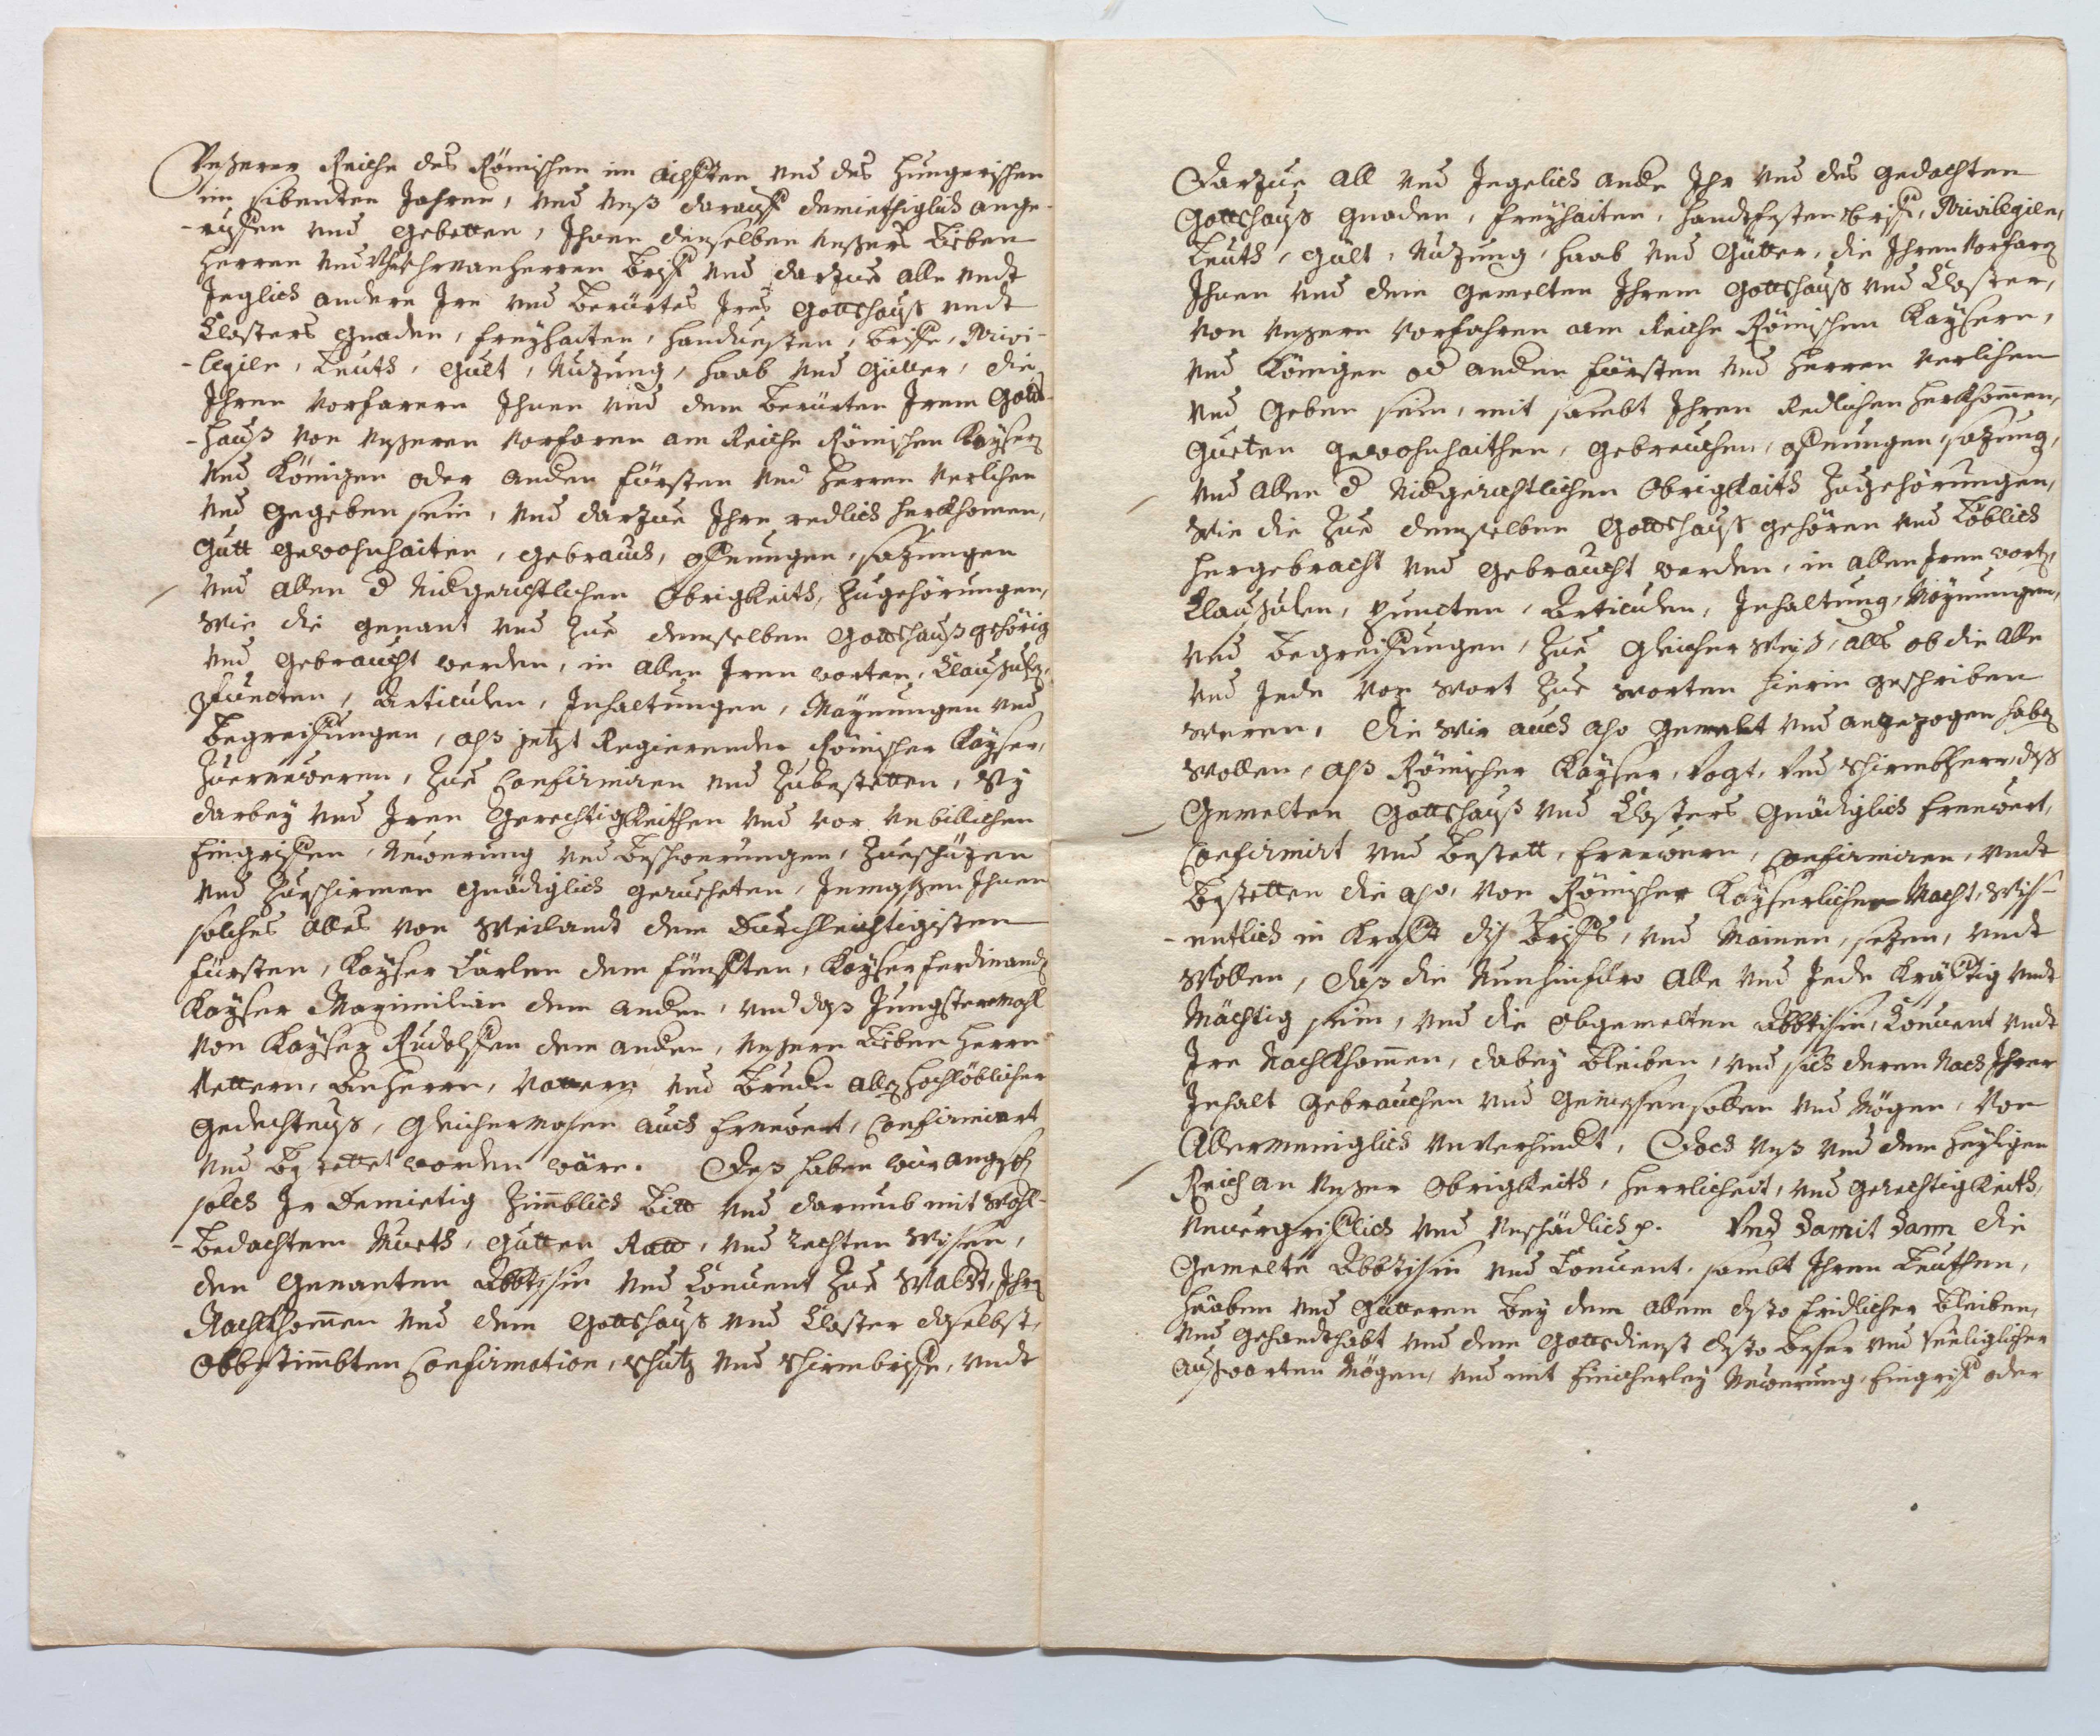 Vnßerer Reiche des Römischen im achsten vnd des Hungerischen
im sibenden Jahren, vnd vnß darauff demiethiglich ange-
-ruffen vnd gebetten, Ihnen denselben vnßers lieben
Herren vnd Vhranherren brieff vnd darzue alle vndt
Jeglich andere Ire vnd berürtes Ires Gottshauß vndt
Closters gnaden, freyhaiten, handuesten, brieffe, Privi-
-legien, Leuth, gült, Nuzung, Haab vnd gütter, die
Ihren Vorfarern Ihnen vnd dem berürten Irem Gotts-
-hauß von vnßeren Vorfaren am Reiche Römischen Kaysern
vnd Königen oder anden fürsten vnd Herren verlihen
vnd gegeben sein, vnd darzue Ihre redlich herkhomen,
gutt gewohnhaiten, gebrauch, offnungen, sazungen
vnd allen d Nidgerichtlichen Obrigkeith, zugehörungen,
Wie die genant vnd zue demselben Gottshauß gehörig
vnd gebraucht werden, in allen Iren worten, Clausulen,
Puncten, Articulen, Inhaltungen, Maynungen vnd
begreiffungen, alß jetzt Regierender Römischer Kayser,
zuernewern, zue confirmiren vnd zubestetten, Sy
darbey vnd Iren Gerechtigkeithen vnd vor vnbillichen
Eingriffen, Newerung vnd beschwerungen, zueschüzen
vnd zueschirmen gnädiglich geruecheten, Inmaßen Ihnen
solches alles von Weilandt dem Durchleichtigisten
fürsten, Kayser Carlen dem fünfften, Kayser Ferdinand,
Kayser Maximilian dem anden, vnd daß Jungstermahl
von Kayser Rudolffen dem anden, vnßern lieben Herrn
Vettern, Anherrn, Vattern vnd brueder aller hochlöblicher
Gedechtnuß, gleichermasen auch Ernewert, confirmiert
vnd bestettet worden wäre. Deß haben wür angesehen
solch Ir demietig zimblich bitt vnd darumb mit wohl-
-bedachtem Mueth, gutten Rath, vnd rechten wissen,
den genanten Abbtisin vnd Conuent zue Waldt, Ihren
Nachkhommen vnd dem Gottshauß vnd Closter daselbst,
Obbestimbten confirmation, schutz vnd schirmbrieffe, vndt
Darzue all vnd Jegelich ande Ihr vnd des gedachten
Gottshauß gnaden, freyhaiten, handtfesten, brieff, Privilegien,
Leuth, gült, Nuzung, Haab vnd gütter, die Ihren Vorfaren
Ihnen vnd dem gemelten Ihrem Gottshauß vnd Closter,
von vnßern Vorfahren am Reiche Römischen Kaysern,
vnd Königen od anden fürsten vnd Herren verlihen
vnd geben sein, mit sambt Ihren Redlichen herkhommen,
gueten gewohnhaithen, gebreuchen, offnungen, sazung,
vnd allen d Nidgerichtlichen Obrigkaith zugehörungen,
Wie die zue demselben Gottshauß gehören vnd löblich
hergebracht vnd gebraucht werden, in allen Iren worten,
Clausulen, Puncten, Articulen, Inhaltung, Maynungen,
vnd begreiffungen, zue gleicher weiß, alls ob die alle
vnd Jede von wort zue worten hierin geschriben
weren, die wir auch also gemelt vnd angezogen haben
wollen, alß Römischer Kayser, Vogt, vnd schirmbherr, deß
gemelten Gottshauß vnd Closters gnädiglich Ernewert,
Confirmirt vnd bestett, Ernewern, confirmiren, vndt
bestetten die also, von Römischer Kayserlicher Macht, wiss-
-entlich in Krafft diß brieffs, vnd Mainen, sezen, vndt
wollen, daß die Nunhinfüro alle vnd Jede Kräfftig vndt
Mächtig sein, vnd die obgemelten Abbtisin, Conuent vndt
Ire Nachkhommen, dabey bleiben, vnd sich deren Nach Ihrer
Inhalt gebrauchen vnd geniessen sollen vnd Mögen, von
Allermeniglich vnverhindt, Doch vnß vnd dem Heyligen
Reich an vnßer Obrigkeith, Herrlicheit, vnd gerechtigkeith,
vnuergrifflich vnd vnschädlich p. Vnd damit dann die
gemelte Abbtisin vnd Conuent, sambt Ihren Leuthen,
Haaben vnd gütteren bey dem allem desto fridlicher bleiben,
vnd gehandthabt vnd dem Gottsdienst desto besser vnd seeliglicher
außwarten Mögen, vnd mit Eincherley Newerung, Eingriff oder